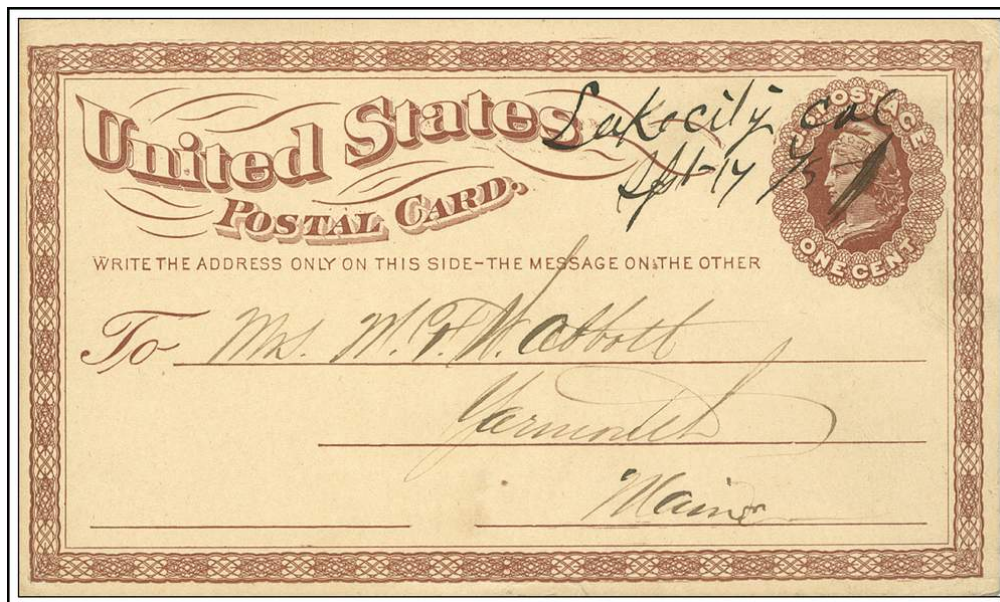 United States
Lakecity Cal
Spt-14 75
POSTAL CARD.
U.S. POSTAGE
ONE CENT
WRITE THE ADDRESS ONLY ON THIS SIDE-THE MESSAGE ON THE OTHER
To Mrs. W. F. W. Abbott
Yarmouth
Maine